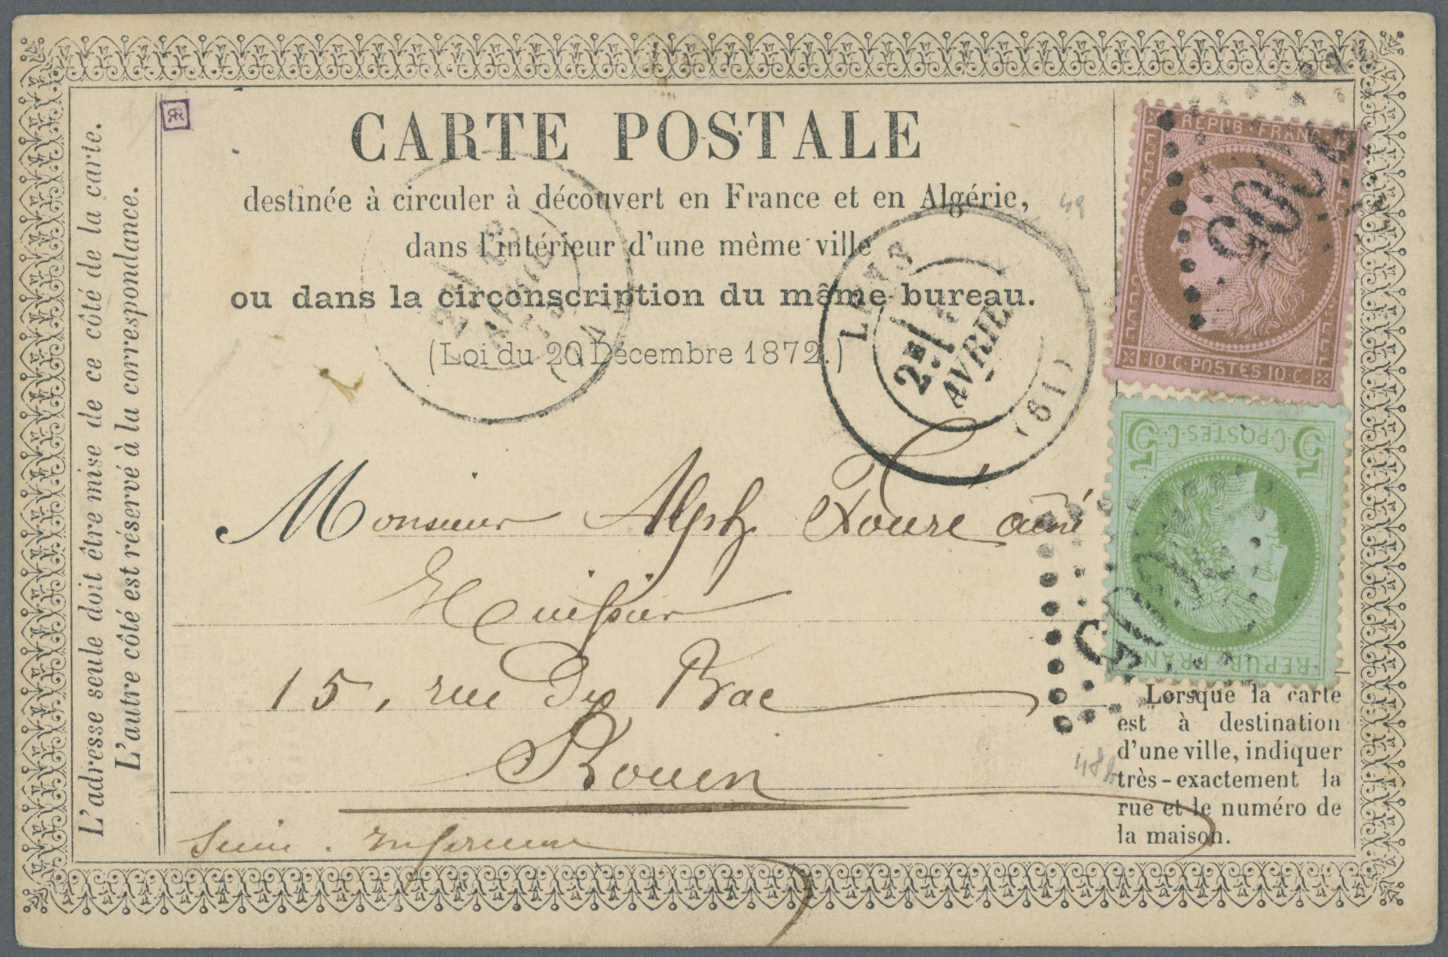 CARTE POSTALE
destinée à circuler à découvert en France et en Algérie,
dans l'intérieur d'une même ville
ou dans la circonscription du même bureau.
(Loi du 20 Décembre 1872.)
L'adresse seule doit être mise de ce côté de la carte.
L'autre côté est réservé à la correspondance.
LENS
2E
AVRIL
(61)
REPUB. FRANC.
10 C. POSTES 10 C.
5 C. POSTES C. 5
REPUB. FRANC.
Monsieur Alph. ainé
Huissier
15, rue du Bac
Rouen
Seine
Lorsque la carte
est à destination
d'une ville, indiquer
très-exactement la
rue et le numéro de
la maison.